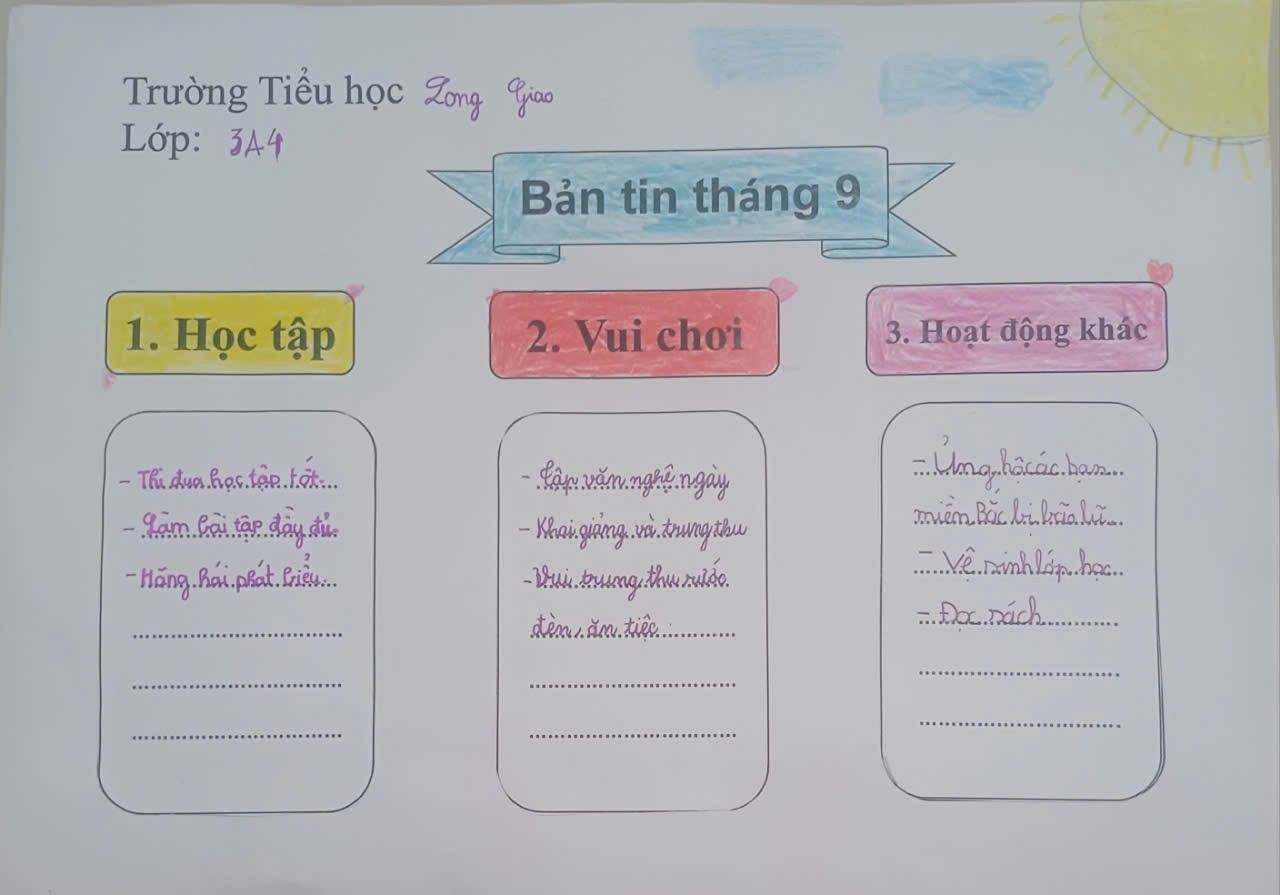 Trường Tiểu học Long Giao
Lớp: 3A4
Bản tin tháng 9
1. Học tập
- Thi đua học tập tốt
- Làm bài tập đầy đủ
- Hăng hái phát biểu
2. Vui chơi
- Tập văn nghệ ngày
- Khai giảng và trung thu
- Vui trung thu rước
đèn, ăn tiệc
3. Hoạt động khác
- Ủng hộ các bạn
miền Bắc bị bão lũ
- Vệ sinh lớp học
- Đọc sách